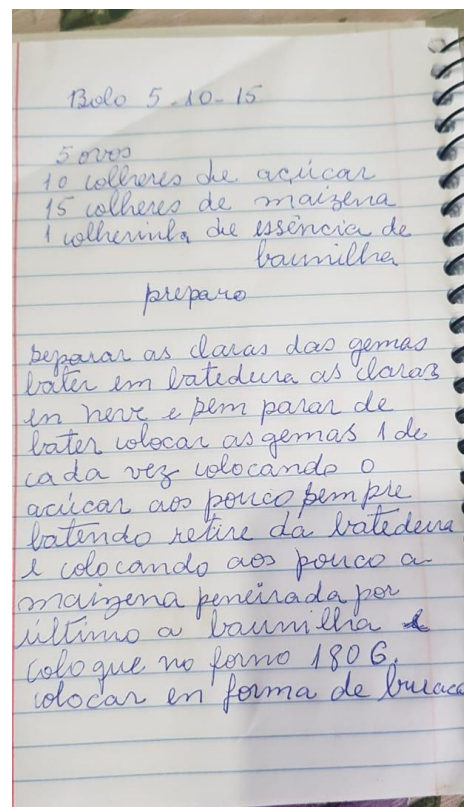 Bolo 5-10-15
5 ovos
10 colheres de açúcar
15 colheres de maizena
1 colherinha de essência de
baunilha
preparo
separar as claras das gemas
bater em batedura as claras
en neve e sem parar de
bater colocar as gemas 1 de
cada vez colocando o
açúcar aos pouco sempre
batendo retire da batedeira
e colocando aos pouco a
maizena peneirada por
último a baunilha
coloque no forno 180G.
colocar en forma de buraco